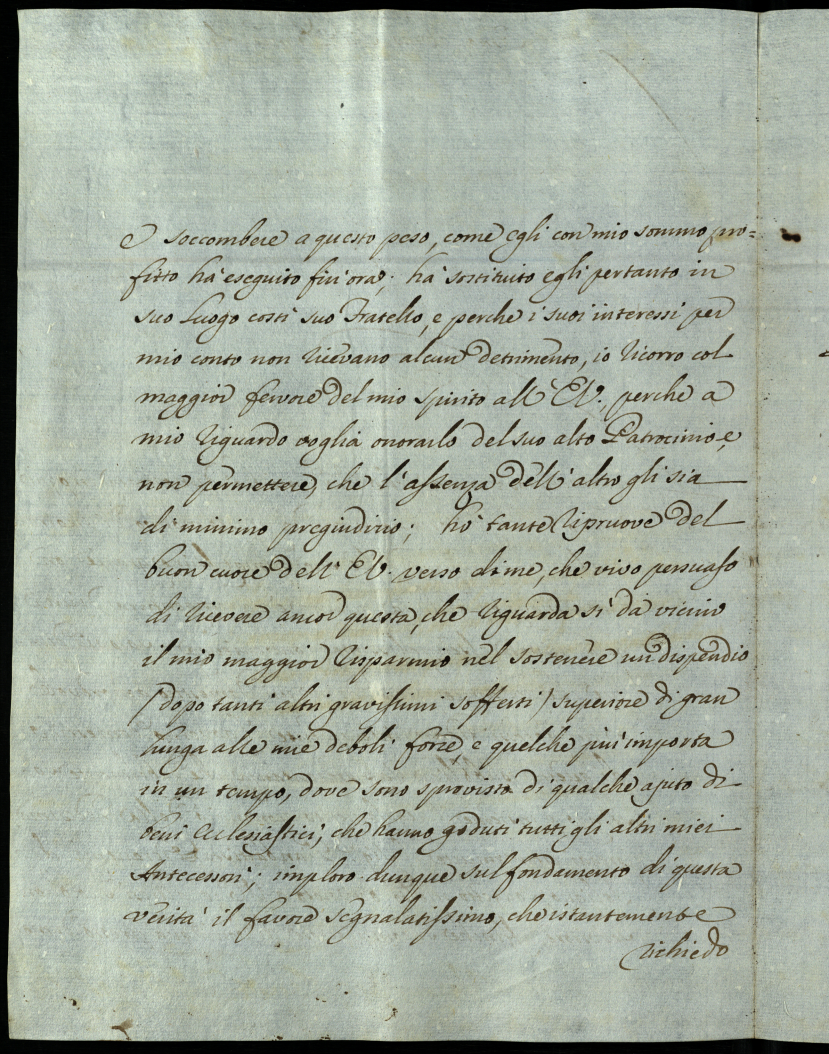 e soccombere a questo peso, come egli con mio sommo pro=
fitto ha' eseguito fin'ora; ha' sostituito egli pertanto in
suo Luogo costì suo Fratello, e perche i suoi interessi per
mio conto non ricevano alcun detrimento, io ricorro col
maggior fervore del mio spirito all' E.V., perche a
mio riguardo voglia onorarlo del suo alto Patrocinio, e
non permettere, che l'assenza dell' altro gli sia
di minimo pregiudizio; ho' tante riprove del
buon cuore dell' E.V. verso di me, che vivo persuaso
di ricevere ancor questa, che riguarda si da vicino
il mio maggior risparmio nel sostenere un dispendio
/ dopo tanti altri gravissimi sofferti / superiore di gran
lunga alle mie deboli forze, e quelche più importa
in un tempo, dove sono sprovisto di qualche ajuto di
beni Eclesiastici, che hanno goduti tutti gli altri miei
Antecessori; imploro dunque sul fondamento di questa
verità il favore segnalatissimo, che istantemente
richiedo